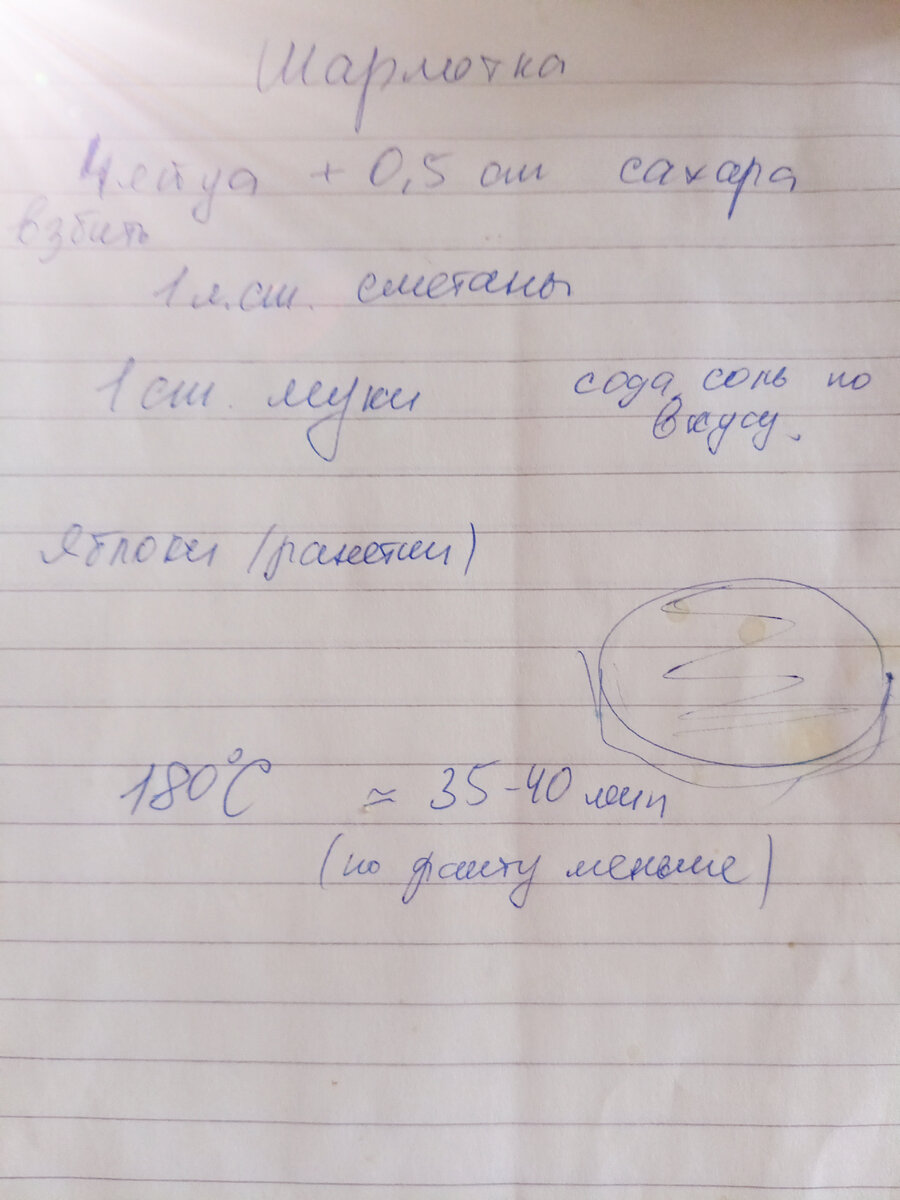 Шарлотка
4 яйца + 0,5 ст сахара
взбить
1 л.ст. сметаны
1 ст. муки
сода, соль по
вкусу.
Яблоки (ранетки)
180°C ≈ 35-40 мин
(по факту меньше)